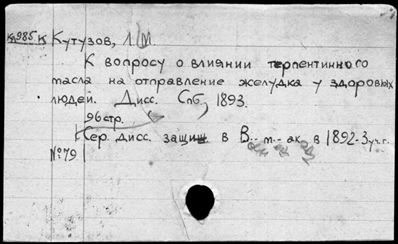 Кутузов,
К вопросу о влиянии терпентинного
масла на отправление желудка у здоровых
людей. Дисс. Спб, 1893.
96 стр.
Сер. дисс. защищ в В.-м.-ак. в 1892-3 уч. г.
№79